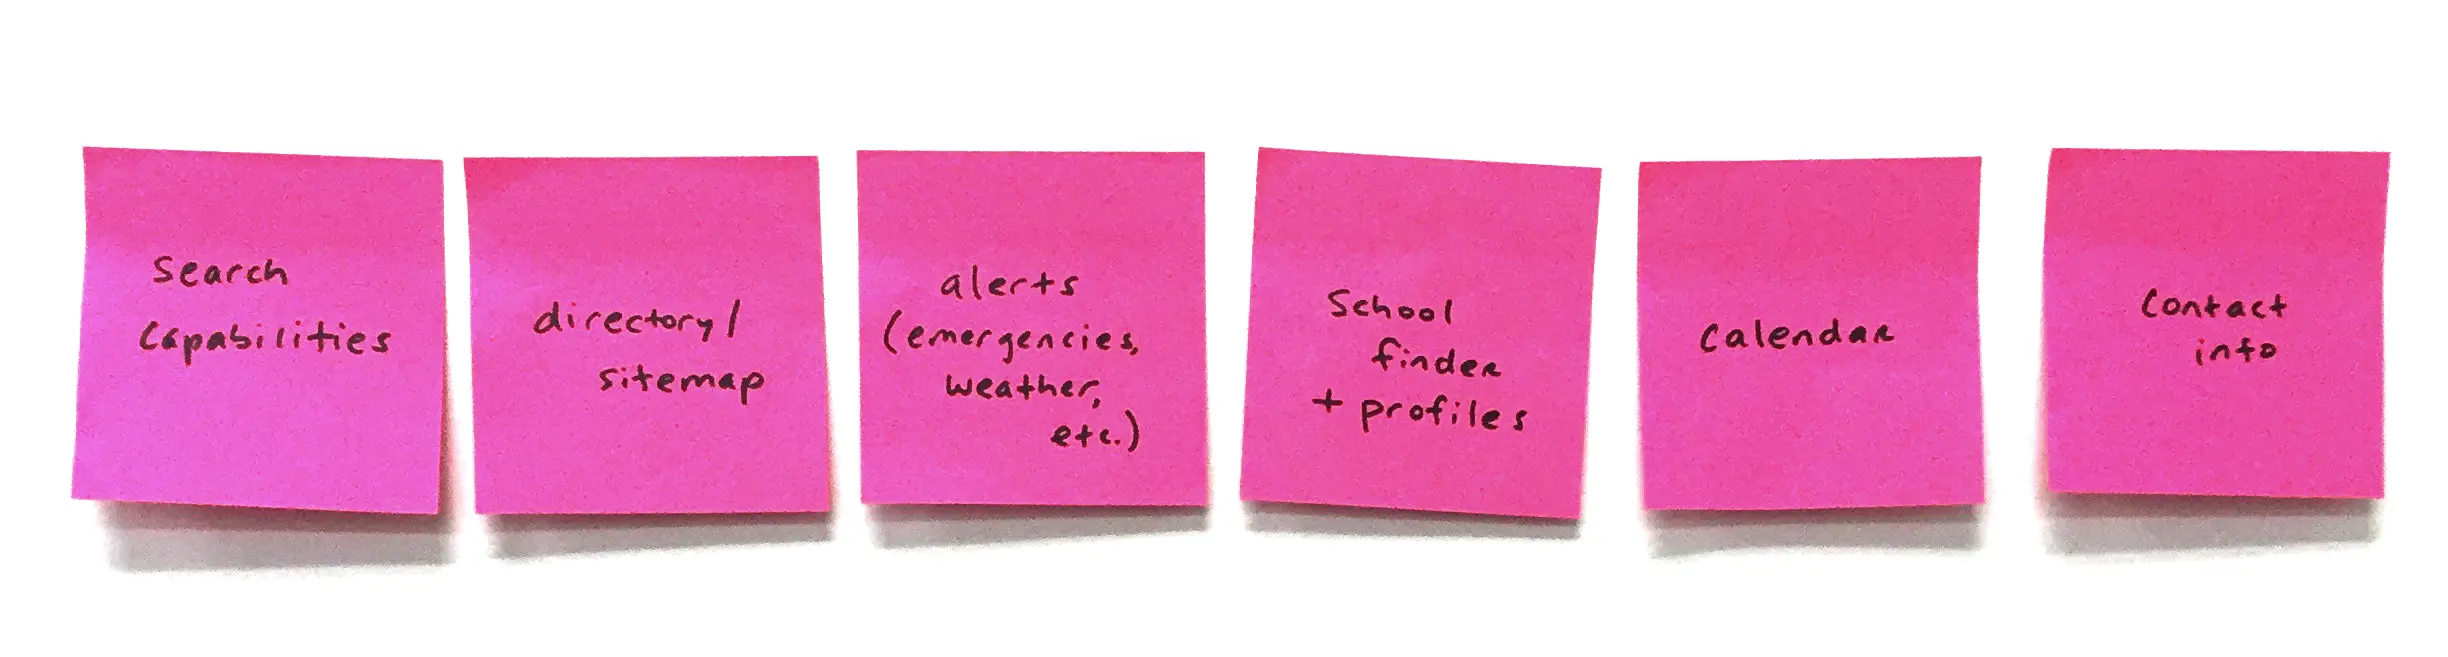 Search
capabilities
directory/
sitemap
alerts
(emergencies,
weather,
etc.)
School
finder
+ profiles
calendar
Contact
info